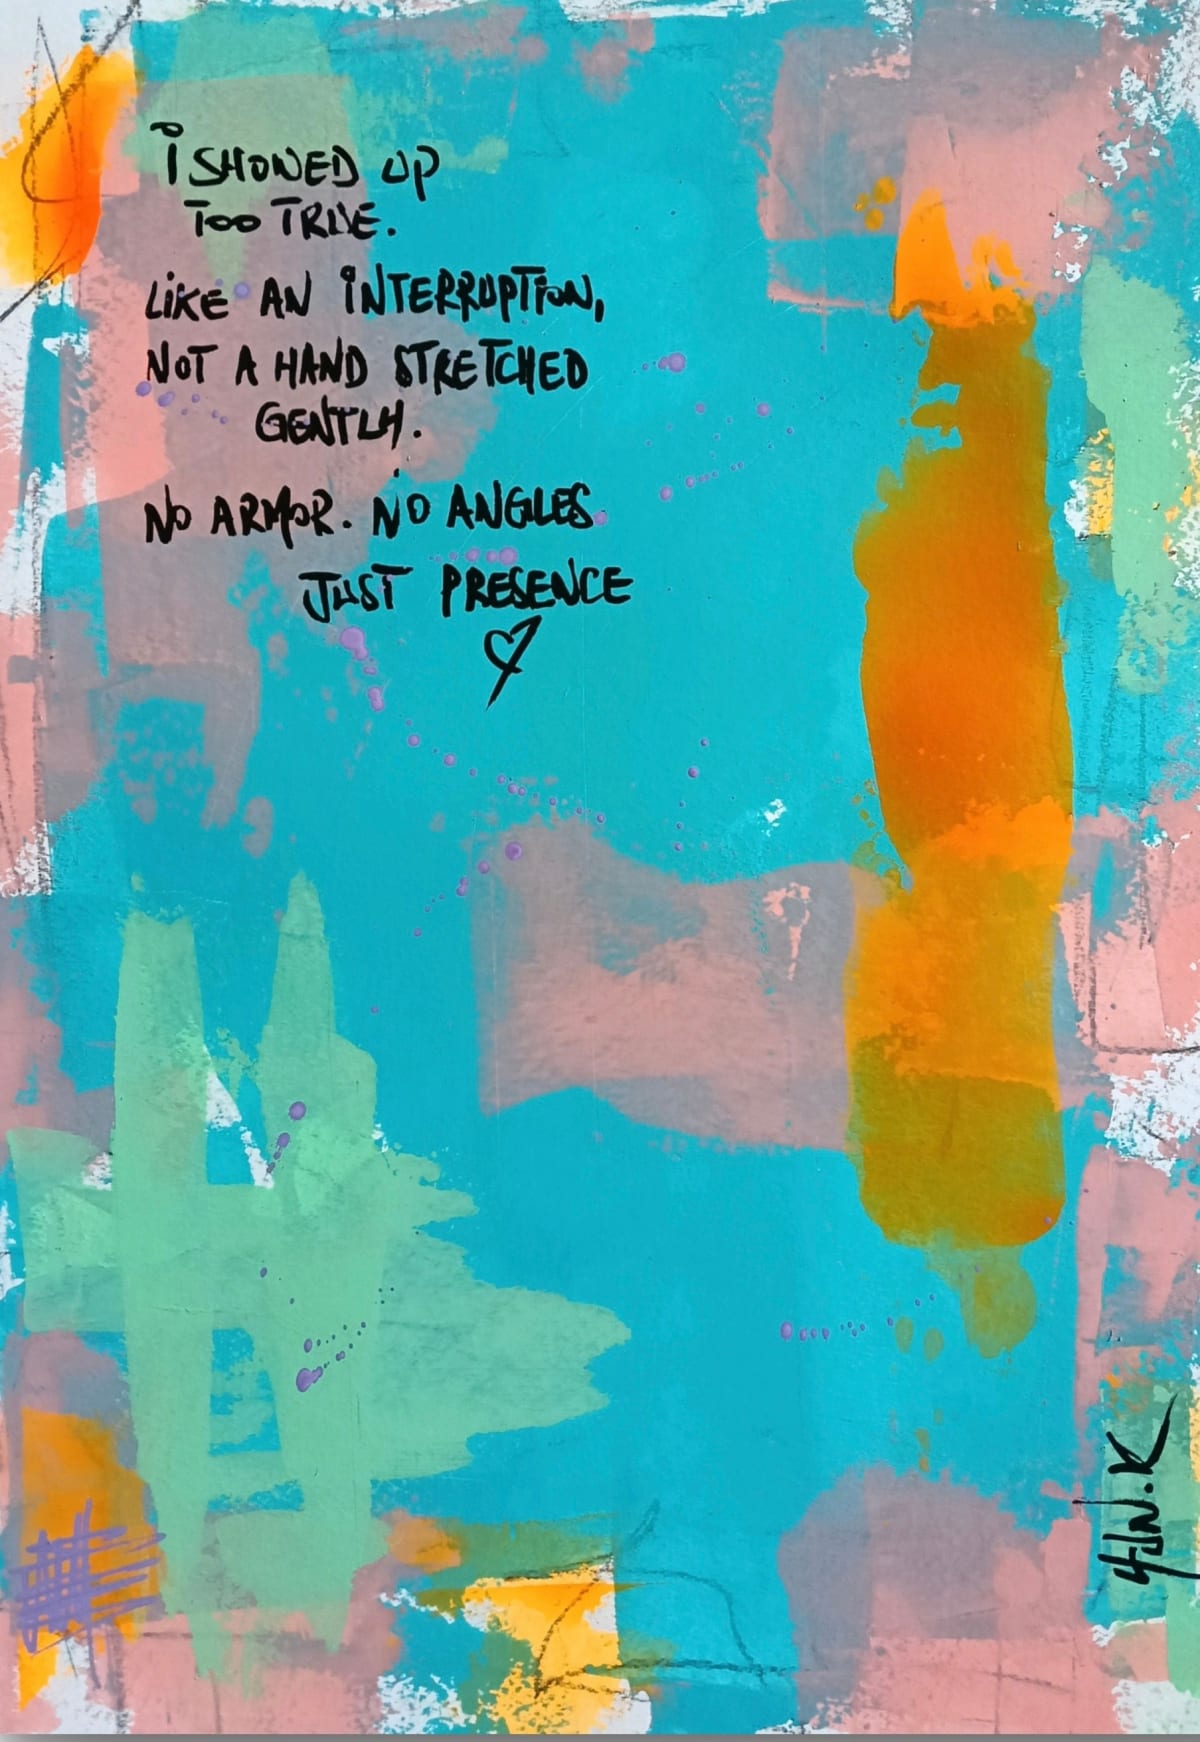 i SHOWED UP
TOO TRUE.
LIKE AN INTERRUPTION,
NOT A HAND STRETCHED
GENTLY.
NO ARMOR. NO ANGLES.
JUST PRESENCE
YUN.K